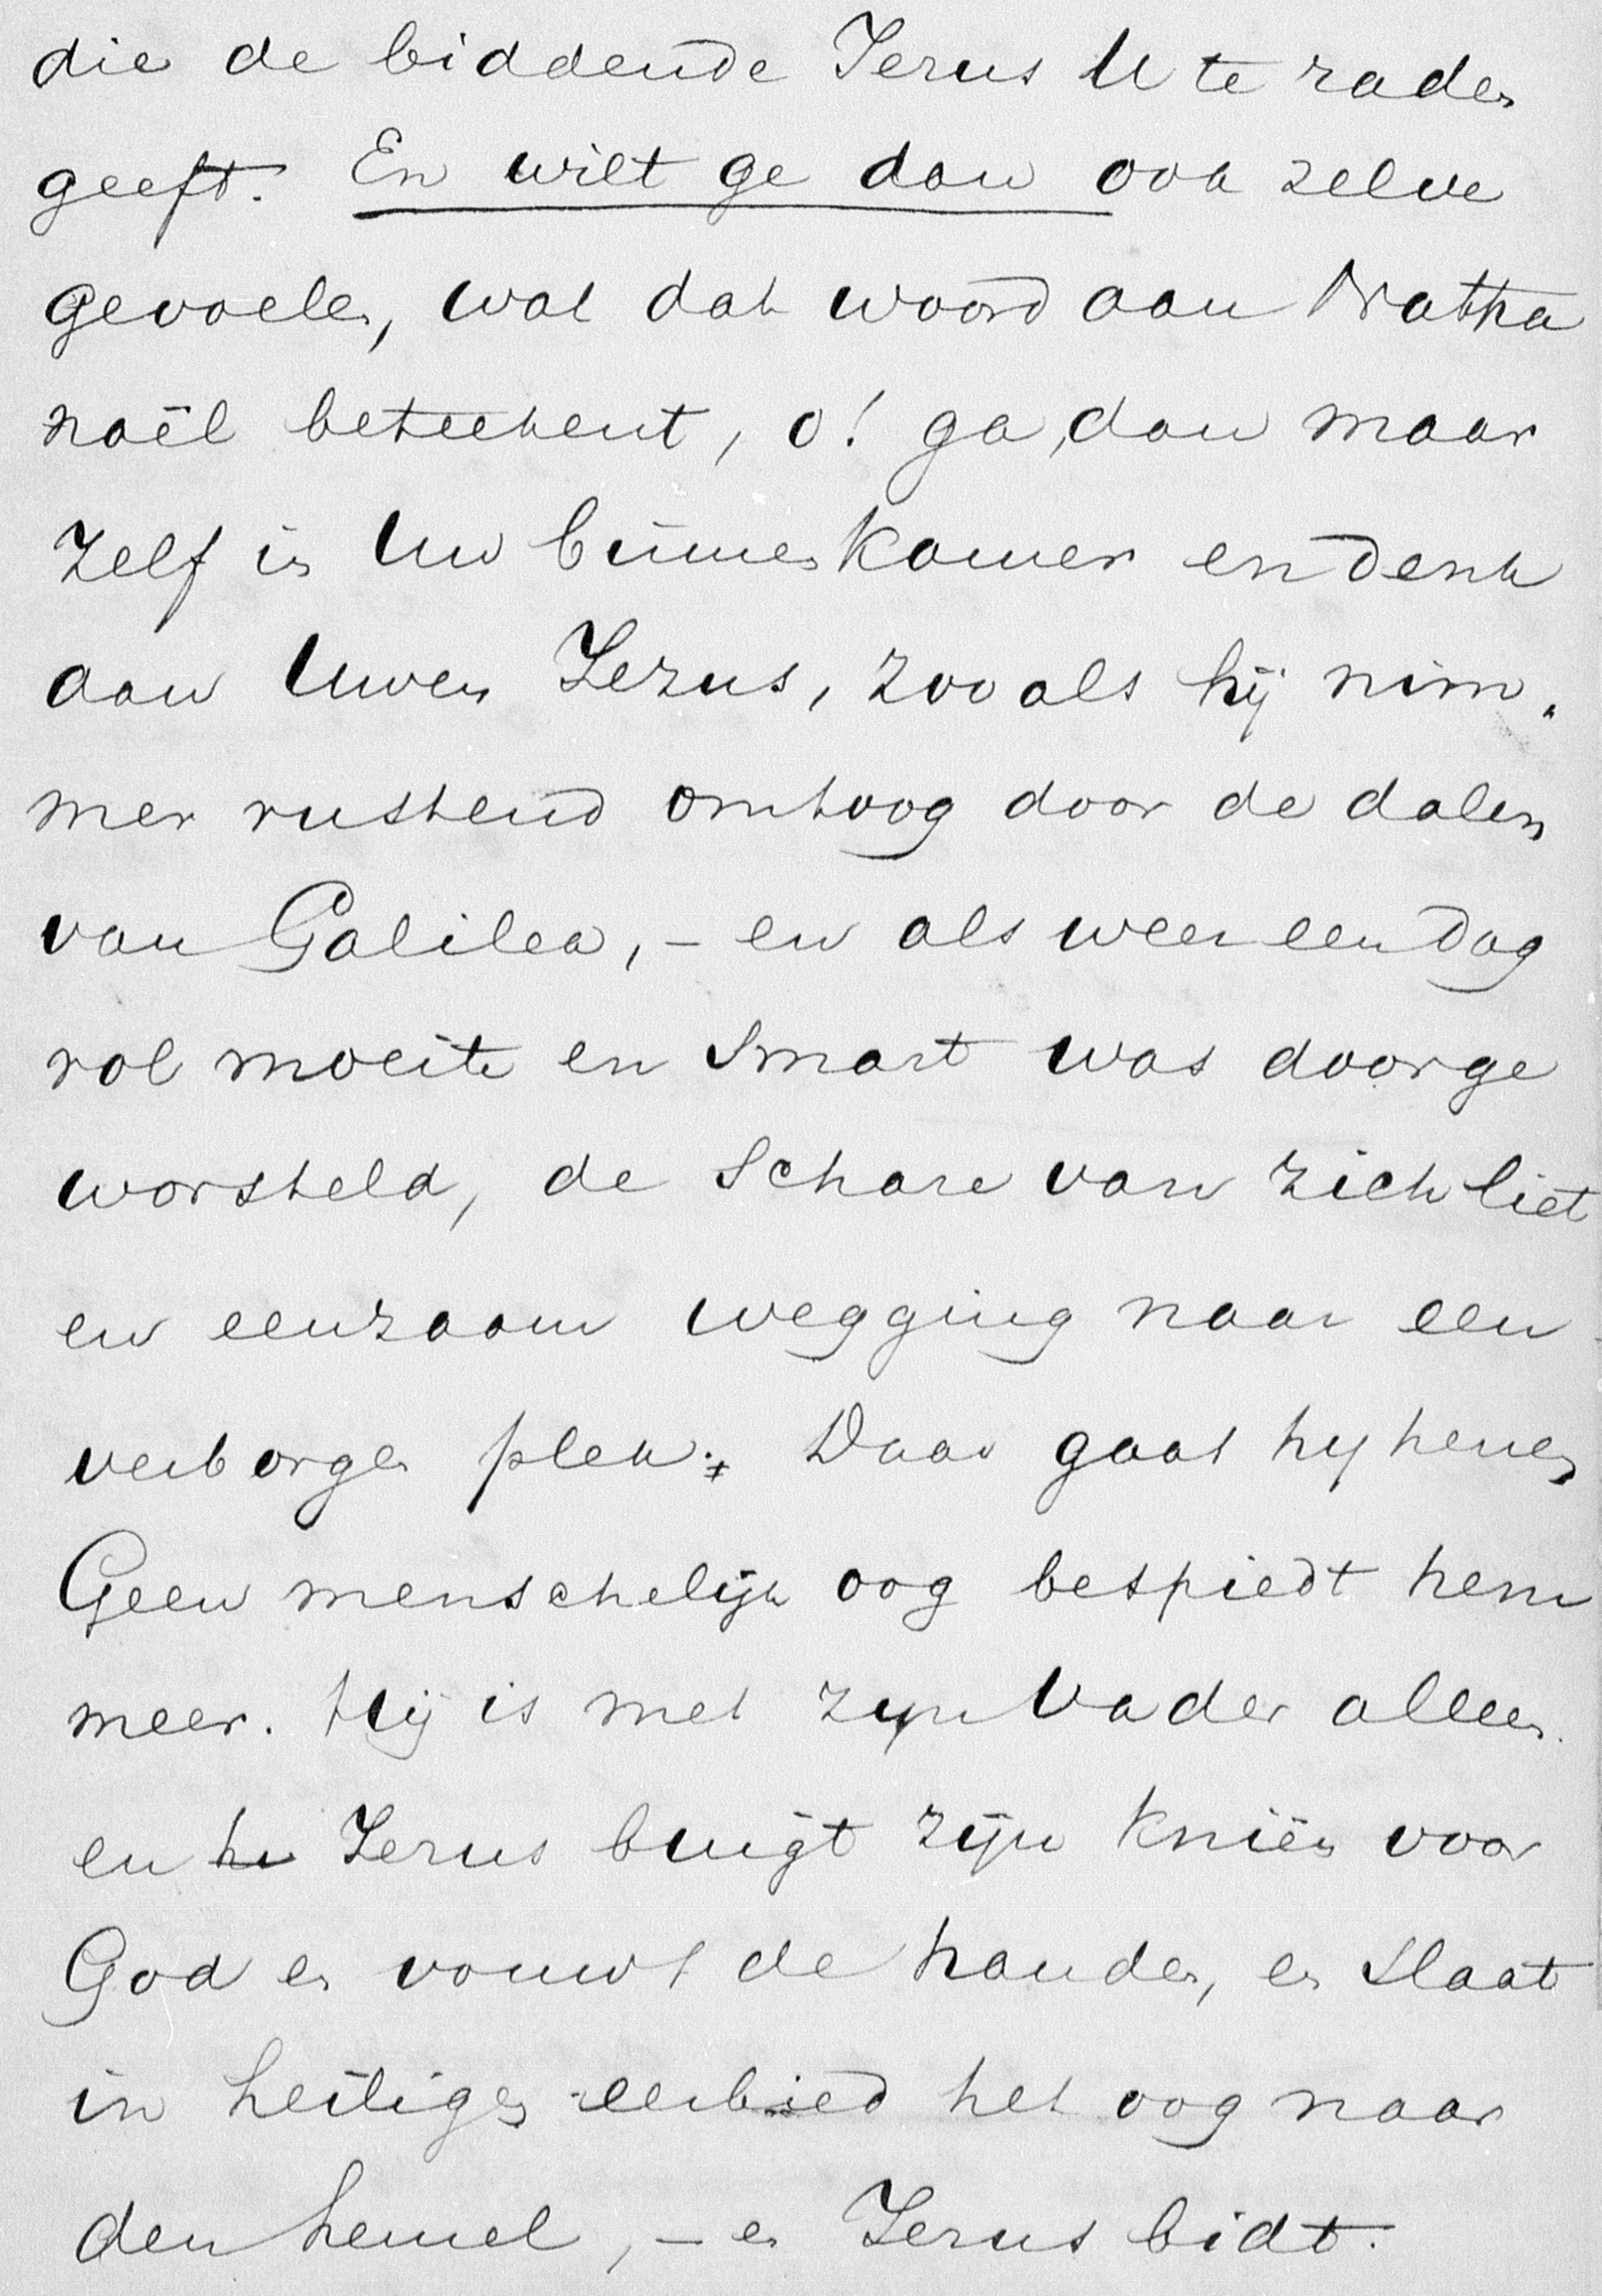 die de biddende Jezus U te raden
geeft. En wilt ge dan ook zelve
gevoelen, wat dat woord aan Natha
naël beteekent, o! ga, dan maar
zelf in Uw binnenkamer en denk
aan Uwen Jezus, zooals hij nim-
mer rustend omtoog door de dalen
van Galilea, - en als weer een dag
vol moeite en smart was doorge
worsteld, de schare van zich liet
en eenzaam wegging naar een
verborgen plek. Daar gaat hy henen
Geen menschelijk oog bespiedt hem
meer. Hij is met zyn Vader alleen.
en Jezus buigt zijn knieën voor
God en vouwt de handen, en slaat
in heiligen eerbied het oog naar
den hemel, - en Jezus bidt.